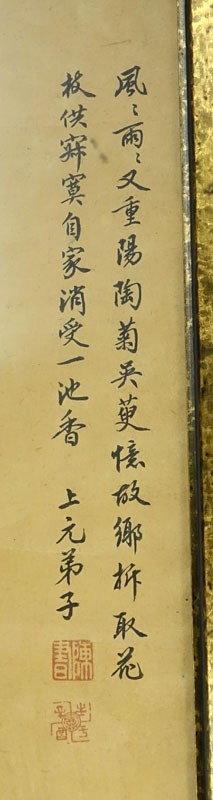 風〻雨〻又重陽陶菊吳萸憶故鄉折取花
枝供寂寞自家消受一池香　上元弟子
陳書